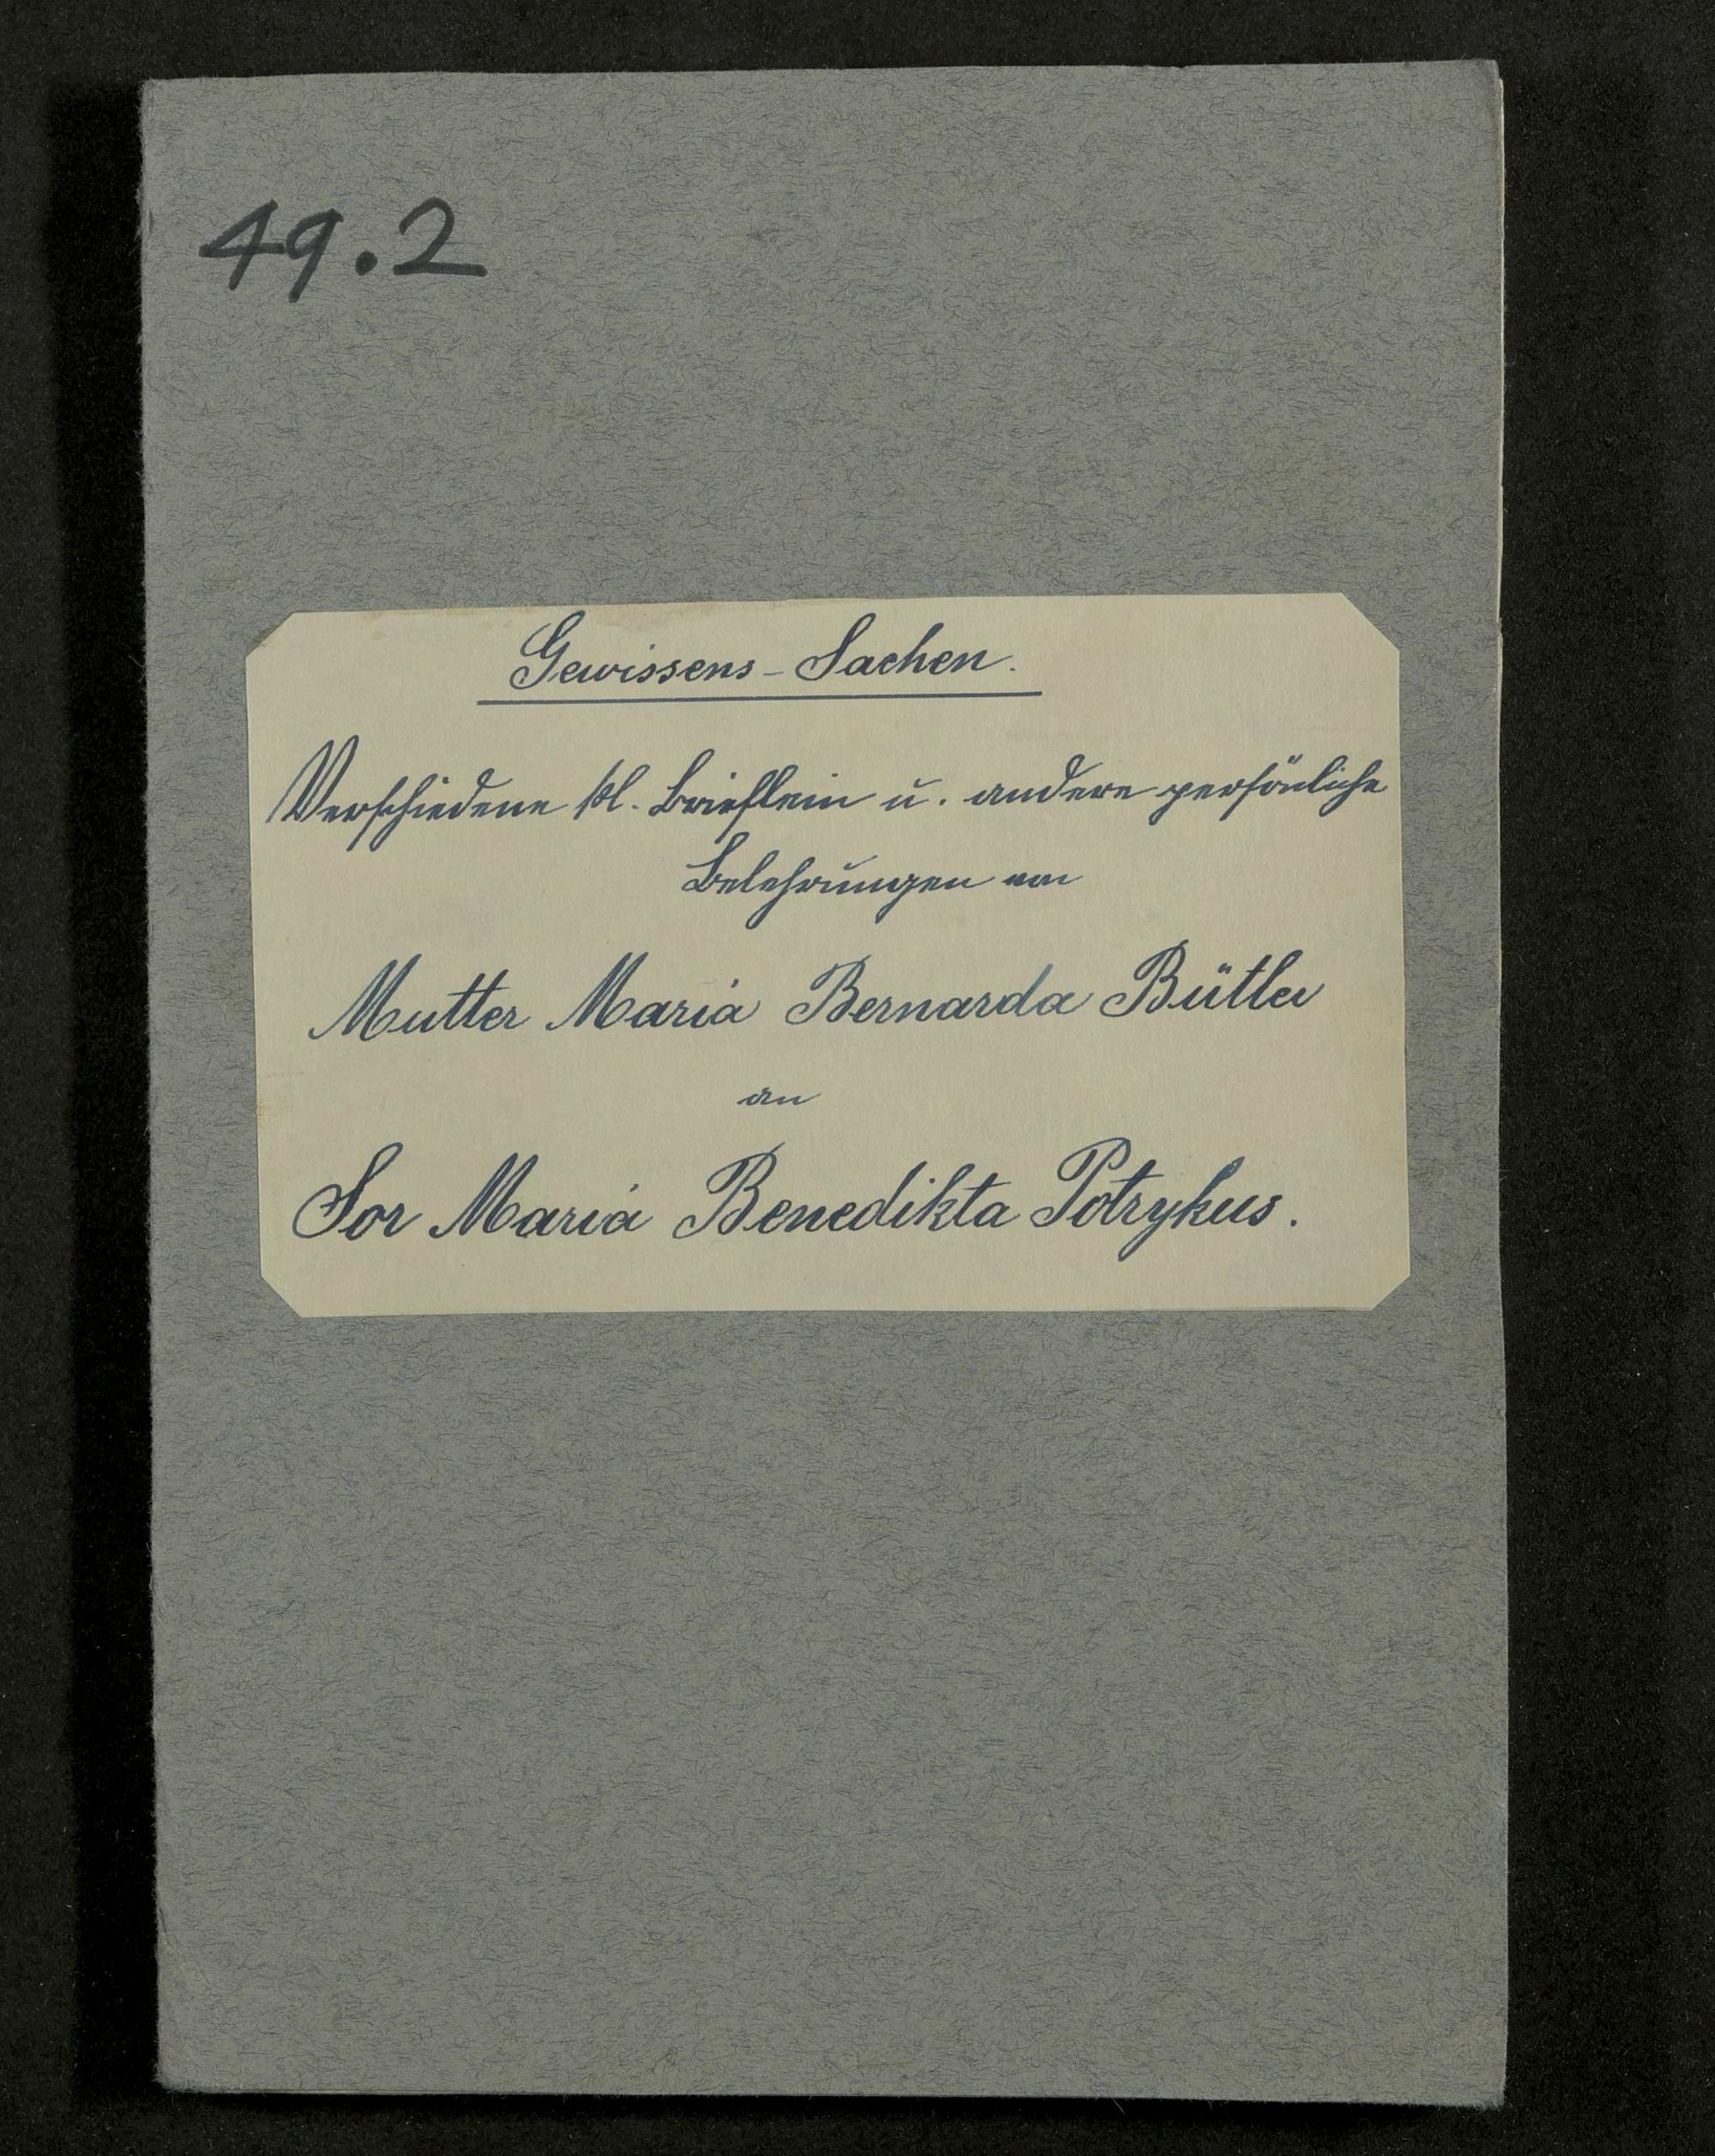 49.2
Gewissens-Sachen.
Verschiedene kl. Brieflein u. andere persönliche
Belehrungen von
Mutter Maria Bernarda Bütler
an
Sor Maria Benedikta Potrykus.